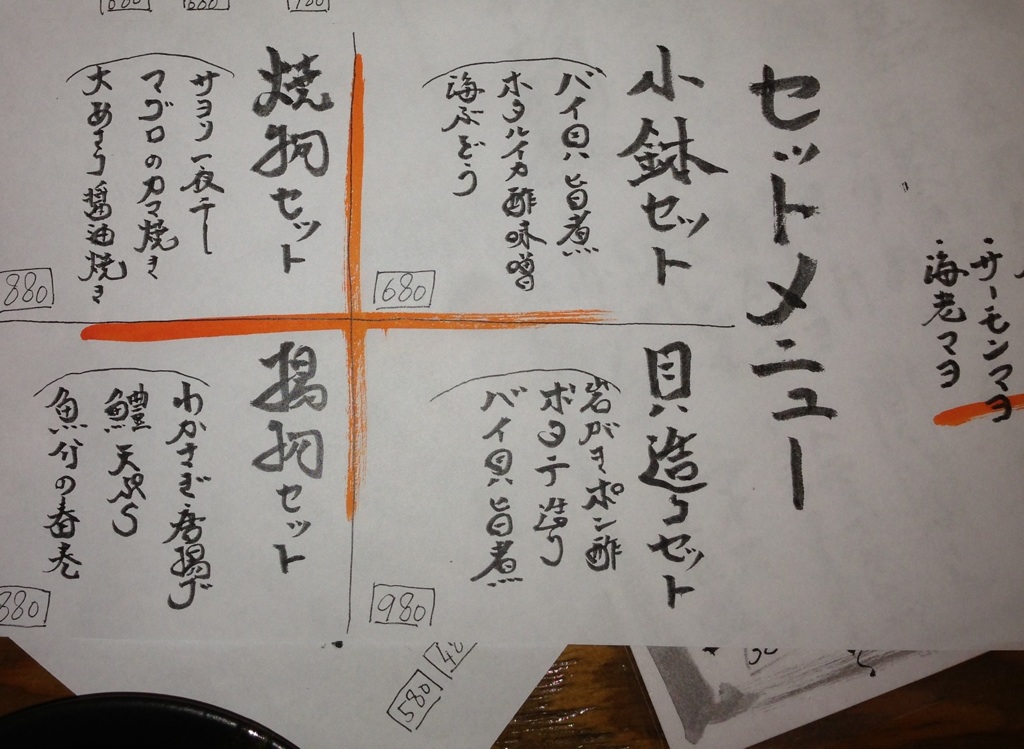 ・サーモンマヨ
・海老マヨ
セットメニュー
小鉢セット
バイ貝旨煮
ホタルイカ酢味噌
海ぶどう
680
貝造りセット
岩がきポン酢
ホタテ造り
バイ貝旨煮
980
焼物セット
サヨリ一夜干し
マグロのカマ焼き
大あさり醤油焼き
880
揚物セット
わかさぎ唐揚げ
鱧天ぷら
880
580